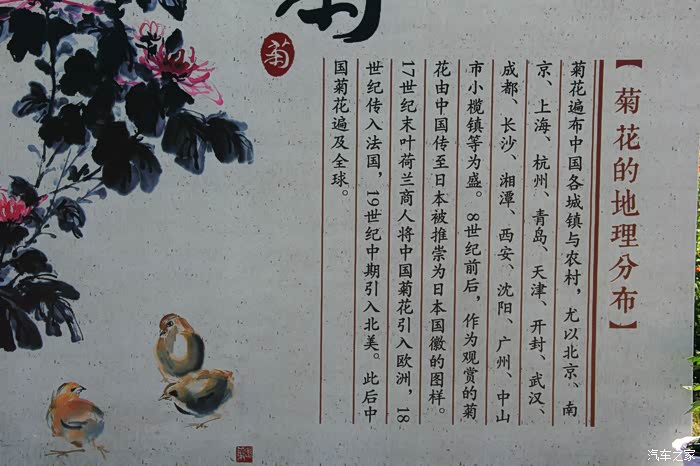 菊
菊
【菊花的地理分布】
菊花遍布中国各城镇与农村，尤以北京、南
京、上海、杭州、青岛、天津、开封、武汉、
成都、长沙、湘潭、西安、沈阳、广州、中山
市小榄镇等为盛。8世纪前后，作为观赏的菊
花由中国传至日本被推崇为日本国徽的图样。
17世纪末叶荷兰商人将中国菊花引入欧洲，18
世纪传入法国，19世纪中期引入北美。此后中
国菊花遍及全球。
汽车之家